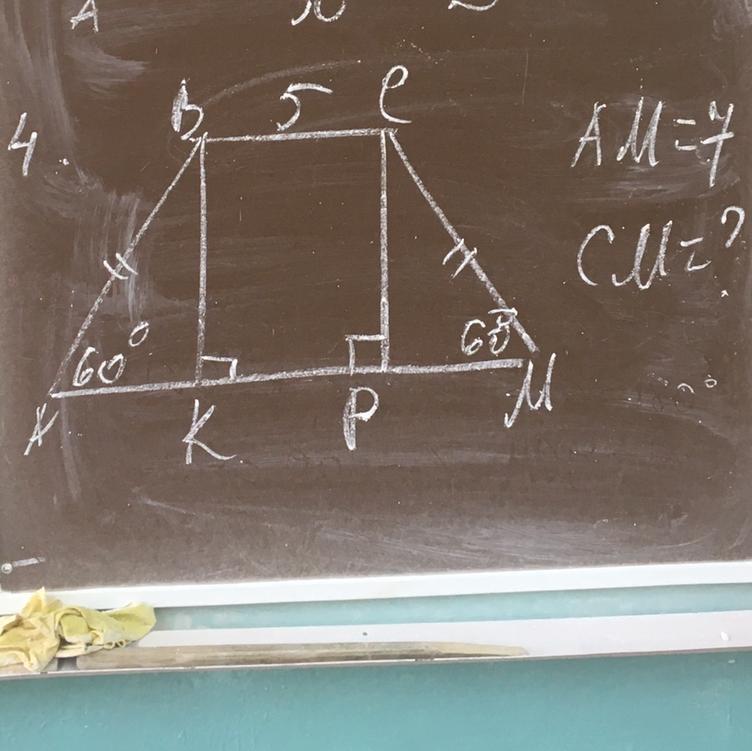 A
4.
B 5 C
AM=7
CM=?
60° 60°
A K P M